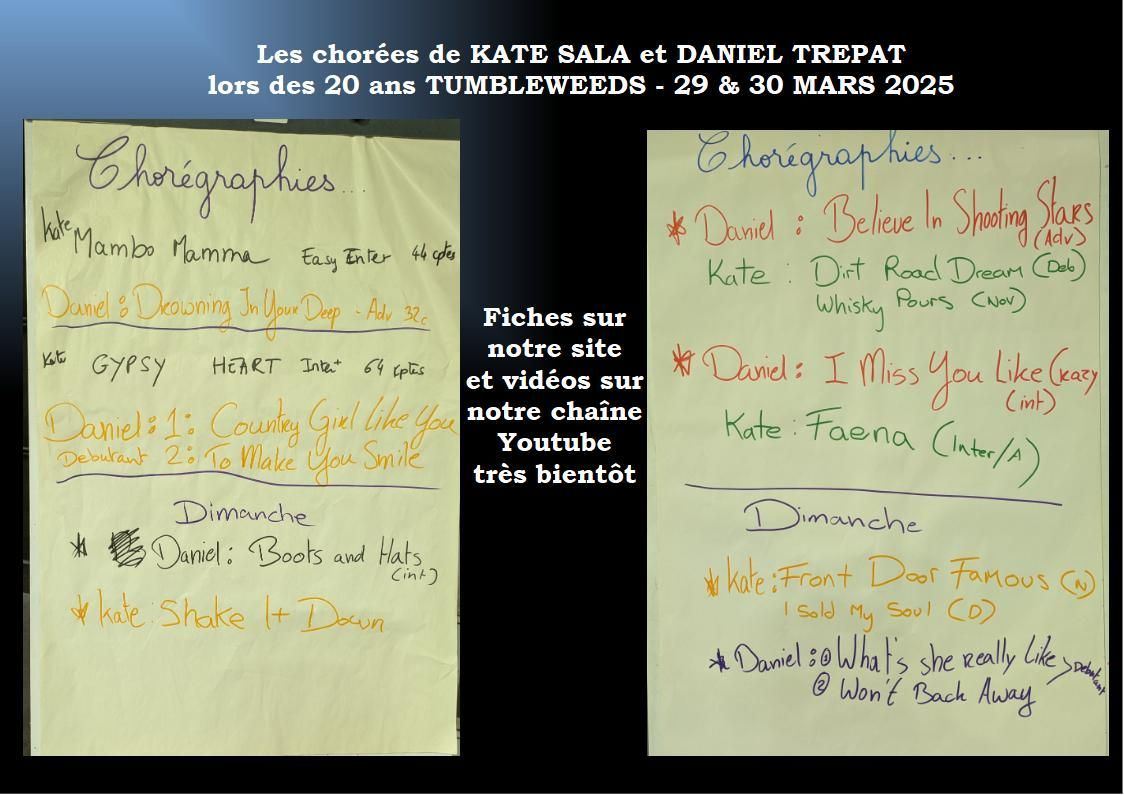 Les chorées de KATE SALA et DANIEL TREPAT
lors des 20 ans TUMBLEWEEDS - 29 & 30 MARS 2025
Chorégraphies...
Kate Mambo Mamma Easy Enter 44 cptes
Daniel : Drowning In Your Deep - Adv 32c
Kate GYPSY HEART Inter+ 64 cptes
Daniel : 1 : Country Girl Like You
Debutant 2 : To Make You Smile
Dimanche
* Daniel : Boots and Hats
(int)
* Kate : Shake It Down
Fiches sur
notre site
et vidéos sur
notre chaîne
Youtube
très bientôt
Chorégraphies...
* Daniel : Believe In Shooting Stars
(Adv)
Kate : Dirt Road Dream (Deb)
Whisky Pours (Nov)
* Daniel : I Miss You Like Krazy
(int)
Kate : Faena (Inter/A)
Dimanche
* Kate : Front Door Famous (N)
I Sold My Soul (D)
* Daniel : ① What's she really like > Debutant
② Won't Back Away